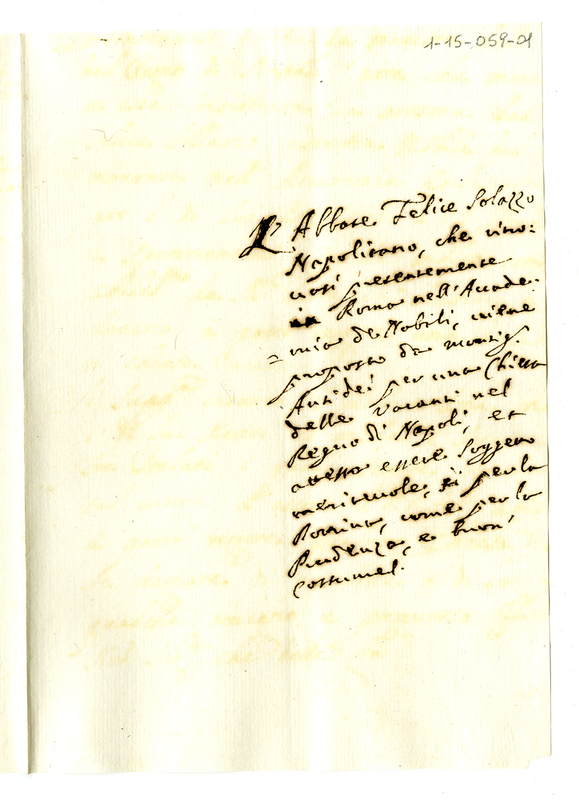 1-15-059-01
L'Abbate Felice Solazzo
Napolitano, che ritro:
vasi presentemente
in Roma nell'Accade:
= mia de Nobili, viene
proposto da monsig.r
Antidei per una Chiesa
delle vacanti nel
Regno di Napoli, et
attesta essere soggetto
meritevole, sì per la
Dottrina, come per la
Prudenza, e buoni
costumi.